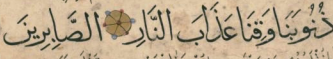 ذُنُوبَنَا وَقِنَا عَذَابَ النَّارِ الصَّابِرِينَ